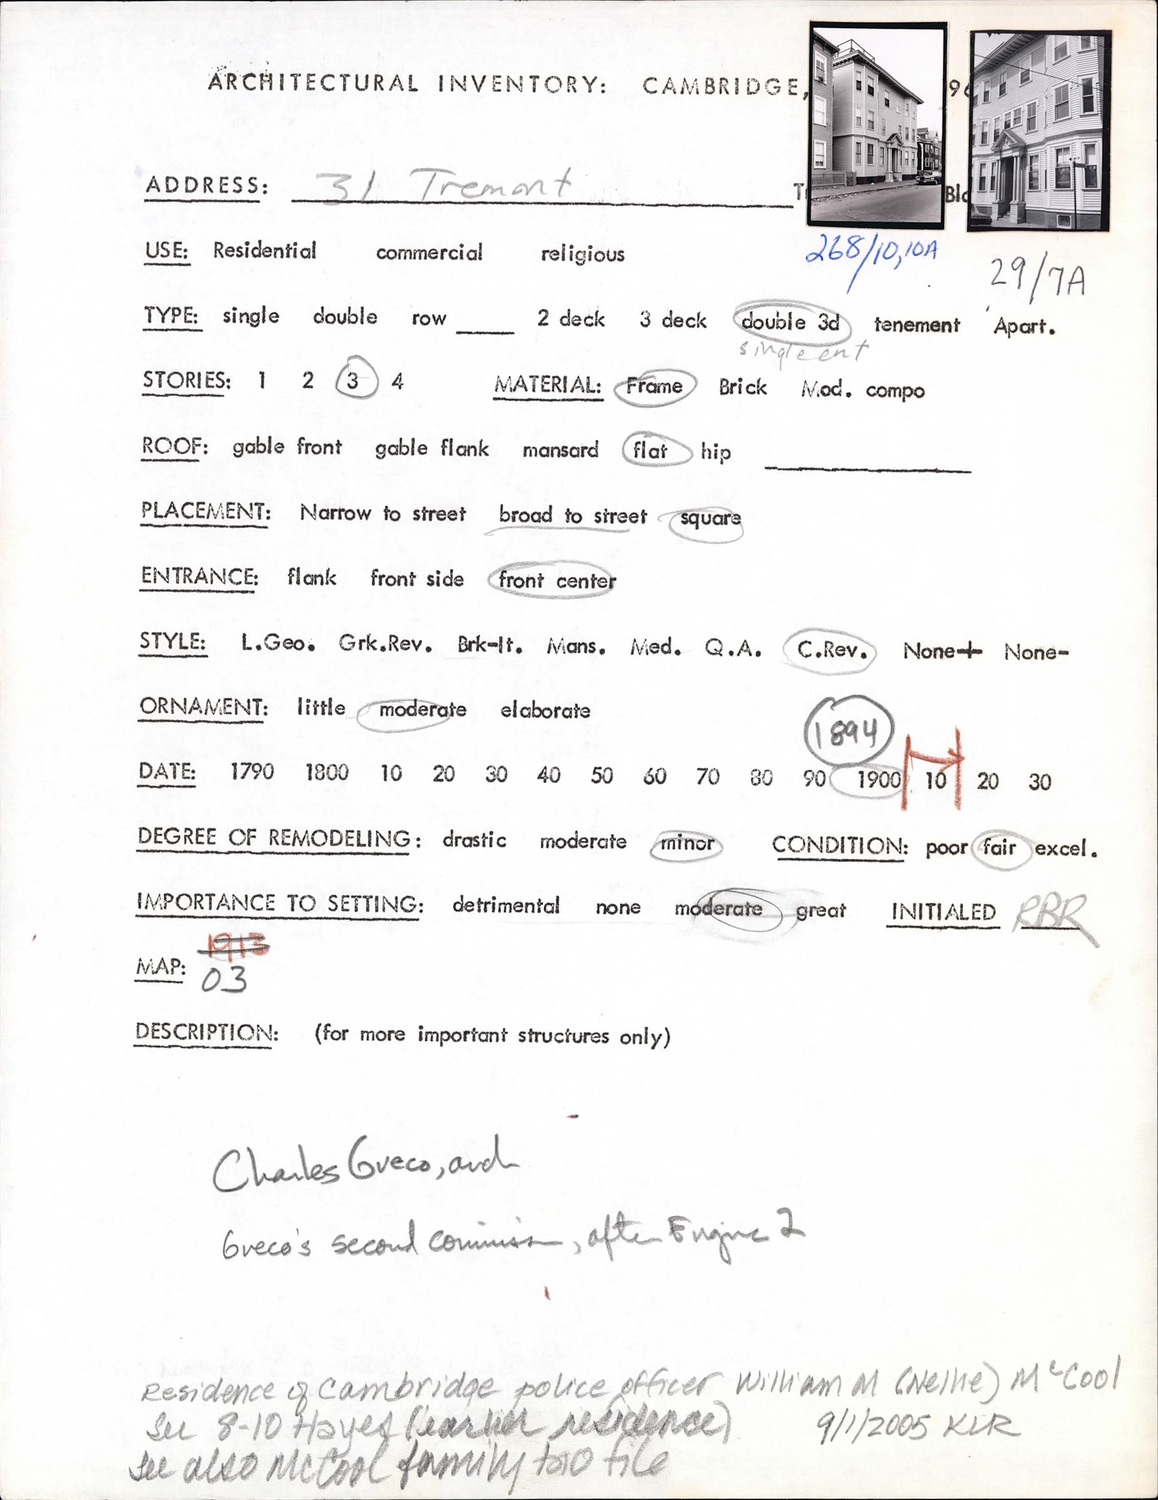 ARCHITECTURAL INVENTORY: CAMBRIDGE, 96
ADDRESS: 31 Tremont Tr Blo
268/10,10A
29/7A
USE: Residential commercial religious
TYPE: single double row ____ 2 deck 3 deck double 3d tenement Apart.
single ent
STORIES: 1 2 3 4 MATERIAL: Frame Brick Mod. compo
ROOF: gable front gable flank mansard flat hip ____
PLACEMENT: Narrow to street broad to street square
ENTRANCE: flank front side front center
STYLE: L.Geo. Grk.Rev. Brk-It. Mans. Med. Q.A. C.Rev. None+ None-
ORNAMENT: little moderate elaborate
1894
DATE: 1790 1800 10 20 30 40 50 60 70 80 90 1900 10 20 30
DEGREE OF REMODELING: drastic moderate minor CONDITION: poor fair excel.
IMPORTANCE TO SETTING: detrimental none moderate great INITIALED RBR
1913
MAP: 03
DESCRIPTION: (for more important structures only)
Charles Greco, arch
Greco's second commission, after Engine 2
Residence of Cambridge police officer William M (Nellie) McCool
See 8-10 Hayes (earlier residence) 9/1/2005 KLR
See also McCool family bio file